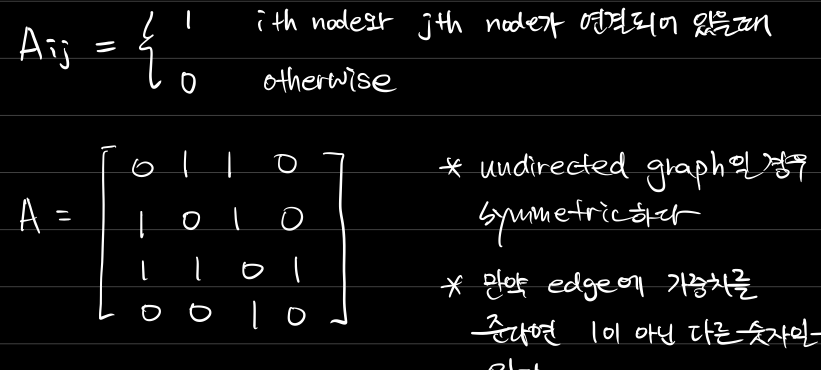 Aij = { 1 ith node와 jth node가 연결되어 있을때
0 otherwise
A = [ 0 1 1 0
1 0 1 0
1 1 0 1
0 0 1 0 ]
* undirected graph일 경우
symmetric하다
* 만약 edge에 가중치를
준다면 1이 아닌 다른 숫자인